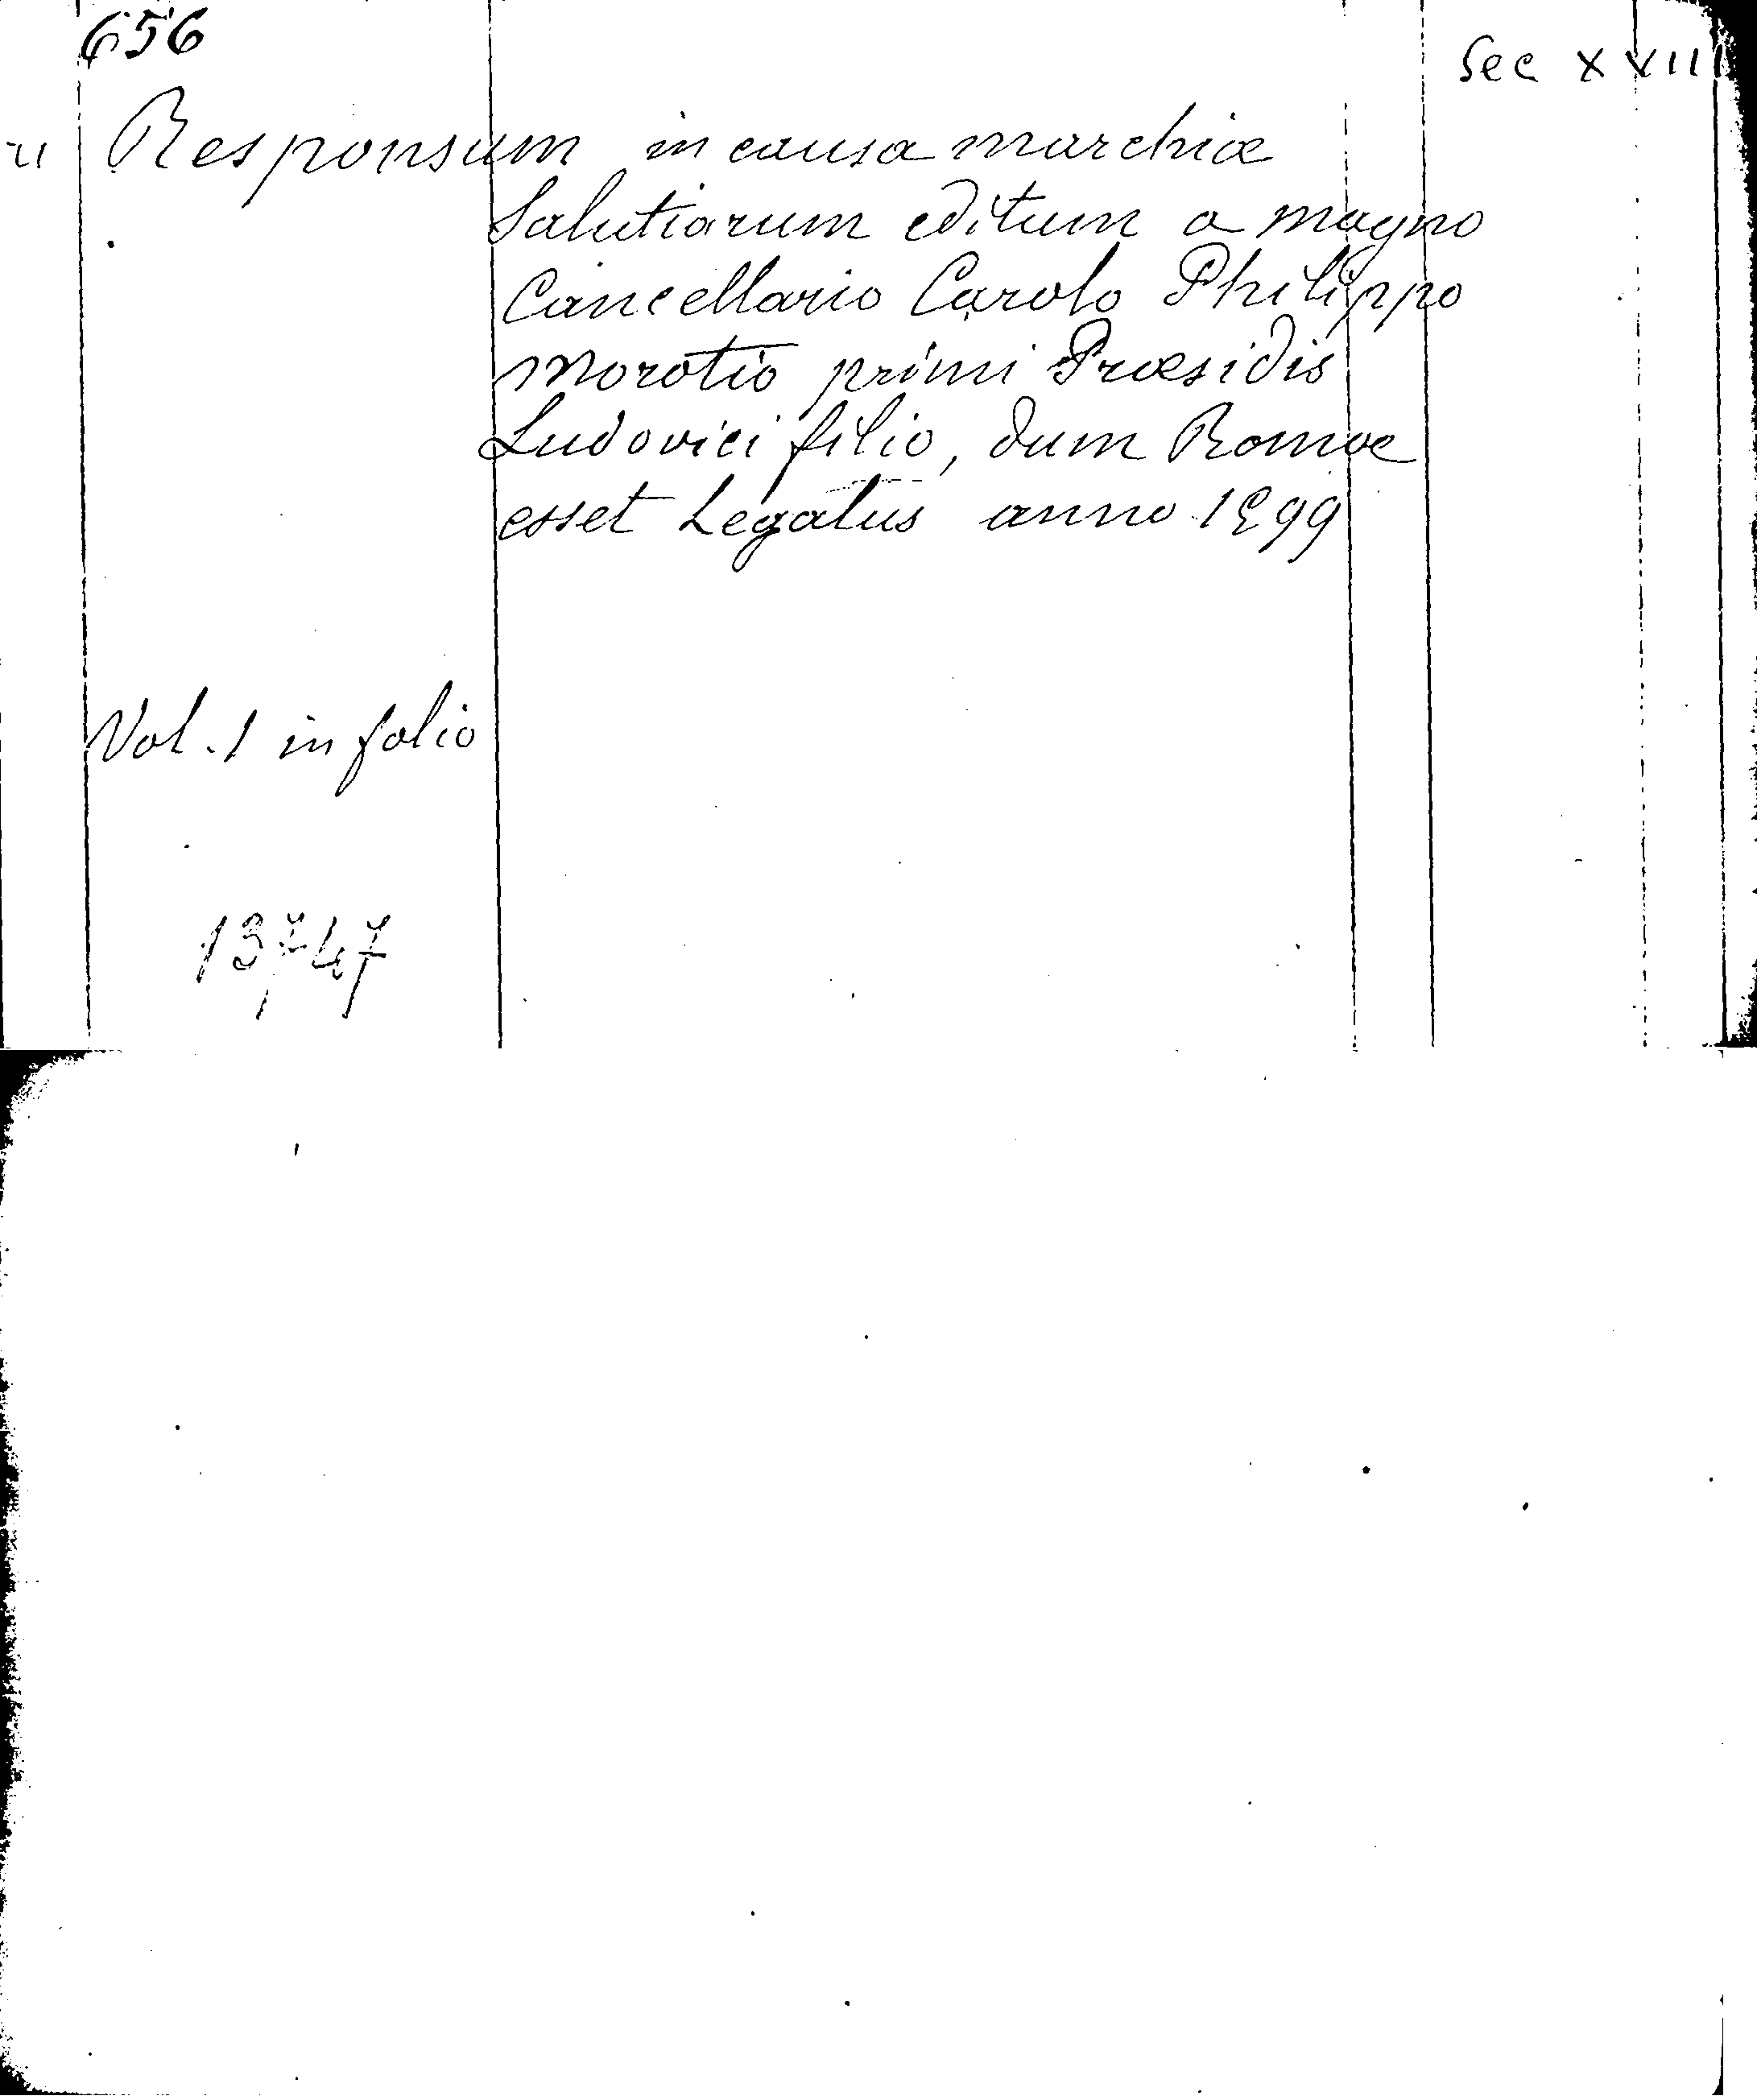 656
Sec XVII
Responsum in causa marchiæ
Salutiarum editum a magno
Cancellario Carolo Philippo
Morotio primi Præsidis
Ludovici filio, dum Romæ
esset Legatus anno 1599
Vol. 1 in folio
13747